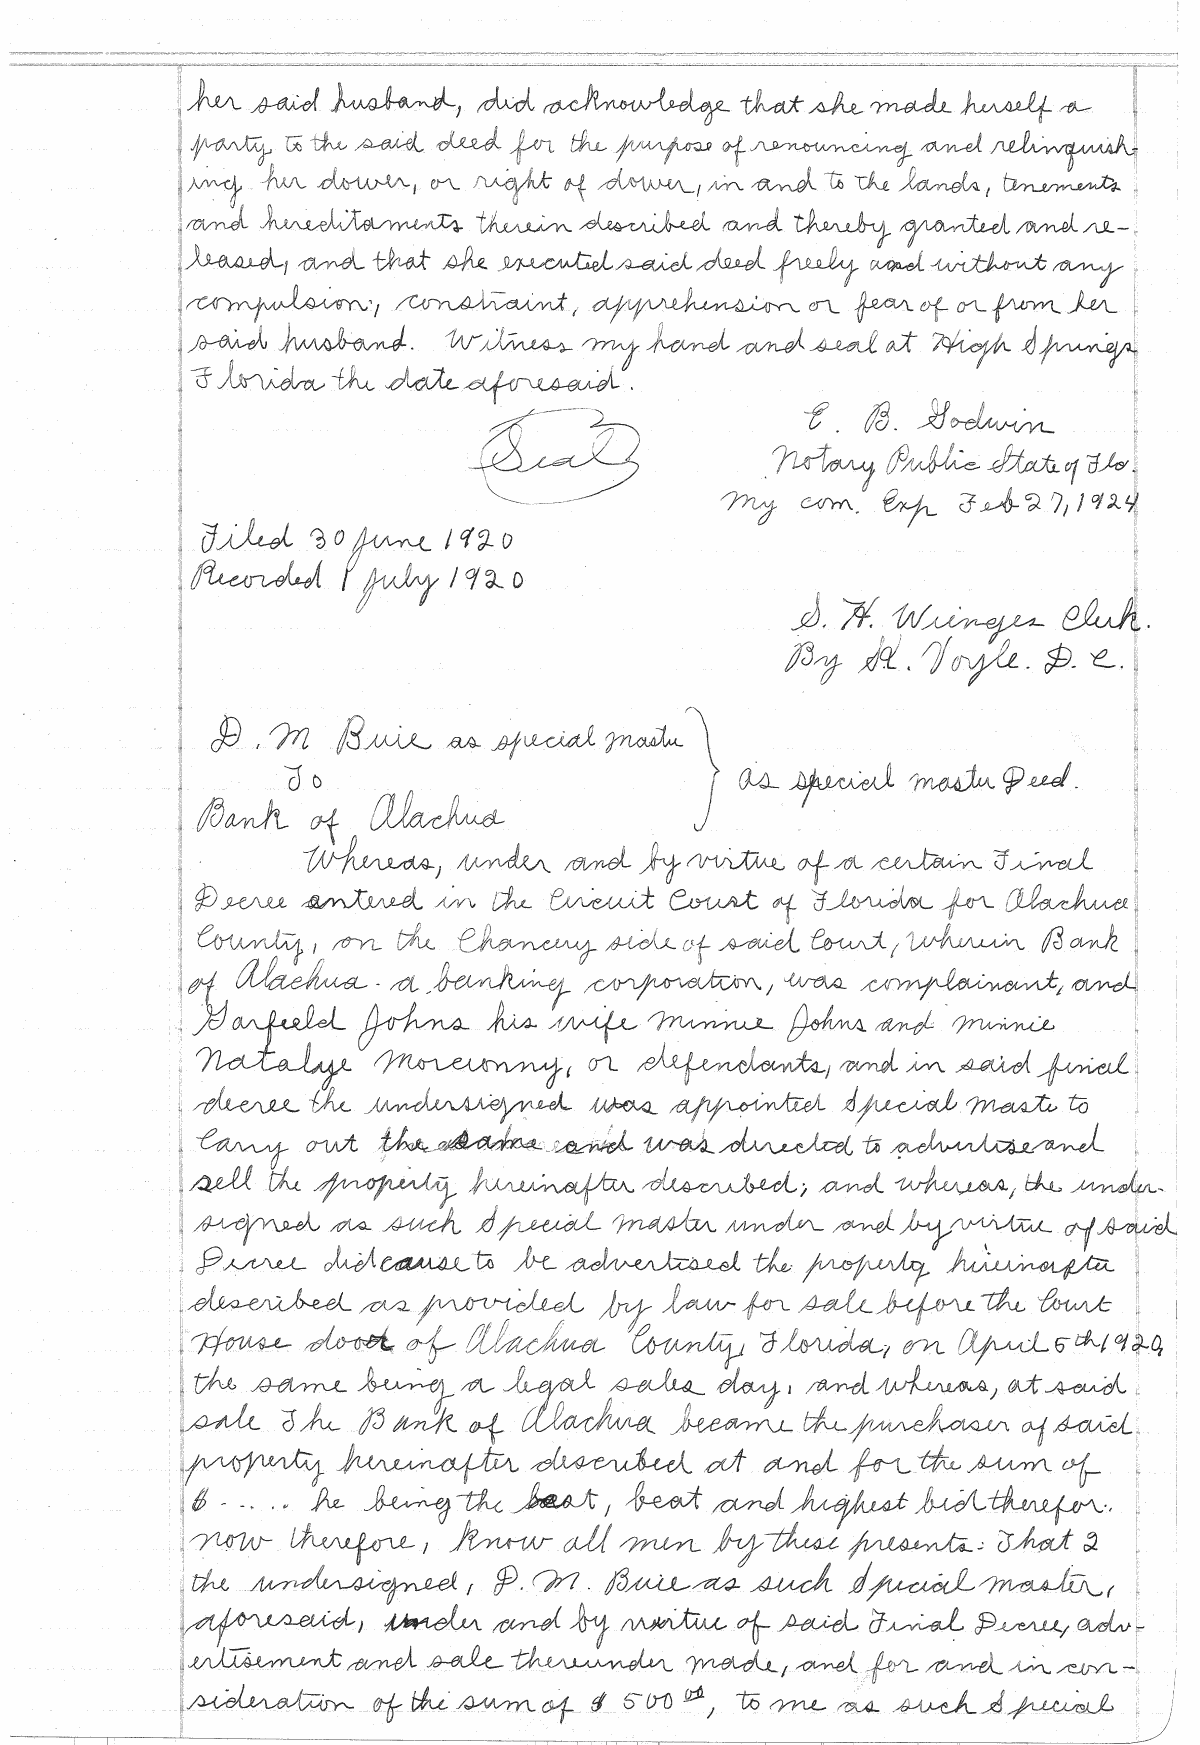 her said husband, did acknowledge that she made herself a
party to the said deed for the purpose of renouncing and relinquish-
ing her dower, or right of dower, in and to the lands, tenements
and hereditaments therein described and thereby granted and re-
leased, and that she executed said deed freely and without any
compulsion, constraint, apprehension or fear of or from her
said husband. Witness my hand and seal at High Springs
Florida the date aforesaid.
E. B. Godwin
Seal
Notary Public State of Flo.
My com. Exp Feb 27, 1924
Filed 30 June 1920
Recorded 1 July 1920
S. H. Wienges Clerk.
By H. Voyle. D. C.
D. M Buie as special Master
To
as special master Deed.
Bank of Alachua
Whereas, under and by virtue of a certain Final
Decree entered in the Circuit Court of Florida for Alachua
County, on the Chancery side of said Court, wherein Bank
of Alachua. a banking corporation, was complainant, and
Garfield Johns his wife Minnie Johns and Minnie
Natalye, or defendants, and in said final
decree the undersigned was appointed Special Maste to
Carry out the same and was directed to advertise and
sell the property hereinafter described; and whereas, the under-
signed as such Special Master under and by virtue of said
Decree did cause to be advertised the property hereinafter
described as provided by law for sale before the Court
House door of Alachua County, Florida, on April 5th 1920,
the same being a legal sales day, and whereas, at said
sale The Bank of Alachua became the purchaser of said
property hereinafter described at and for the sum of
$ - .... he being the best, beat and highest bid therefor.
now therefore, Know all men by these presents: That I
the undersigned, D. M. Buie as such Special Master,
aforesaid, under and by virtue of said Final Decree, adv-
ertisement and sale thereunder made, and for and in con-
sideration of the sum of $ 500 00, to me as such Special